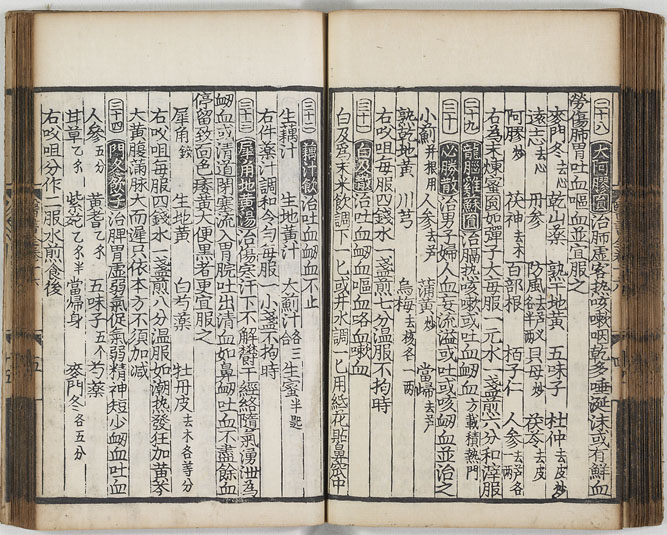 二十八 大阿膠圓 治肺虛客熱咳嗽咽乾多唾涎沫或有鮮血
勞傷肺胃吐血嘔血並宜服之
麥門冬去心 乾山藥 熟干地黃 五味子 杜仲去皮炒
遠志去心 丹參 防風去芦叉各半兩 貝母炒 茯苓去皮
阿膠炒 茯神去木 百部根 栢子仁 人參去芦各一兩
右為末煉蜜圓如彈子大每服一元水一盞煎六分和滓服
二十九 龍腦雞蘇圓 治膈熱咳嗽或吐血衂血方載積熱門
三十 必勝散 治男子婦人血妄流溢或吐或咳衂血並治之
小薊并根用 人參去芦 蒲黃炒 當歸去芦
熟乾地黃 川芎 烏梅去核各一兩
右㕮咀每服四錢水一盞煎七分溫服不拘時
三十一 白及散 治吐血衂血嘔血咯血嗽血
白及為末米飲調下一匕或井水調一匕用紙花貼鼻窊中
三十二 藕汁飲 治吐血衂血不止
生藕汁 生地黃汁 大薊汁各三合 生蜜半匙
右件藥汁調和令勻每服一小盞不拘時
三十三 犀角地黃湯 治傷寒汗下不解欝于經絡隨氣湧泄為
衂血或清道閉塞流入胃脘吐出清血如鼻衂吐血不盡餘血
停留致面色痿黃大便黑者更宜服之
犀角鎊 生地黃 白芍藥 牡丹皮去木各等分
右㕮咀每服四錢水一盞煎八分溫服如潮熱發狂加黃芩
大黃腹滿脉大而遲只依本方不須加減
三十四 門冬飲子 治脾胃虛弱氣促氣弱精神短少衂血吐血
人參五分 黃耆一錢 五味子五个 芍藥
甘草一錢 紫菀一錢半 當歸身 麥門冬各五分
右㕮咀分作二服水煎食後